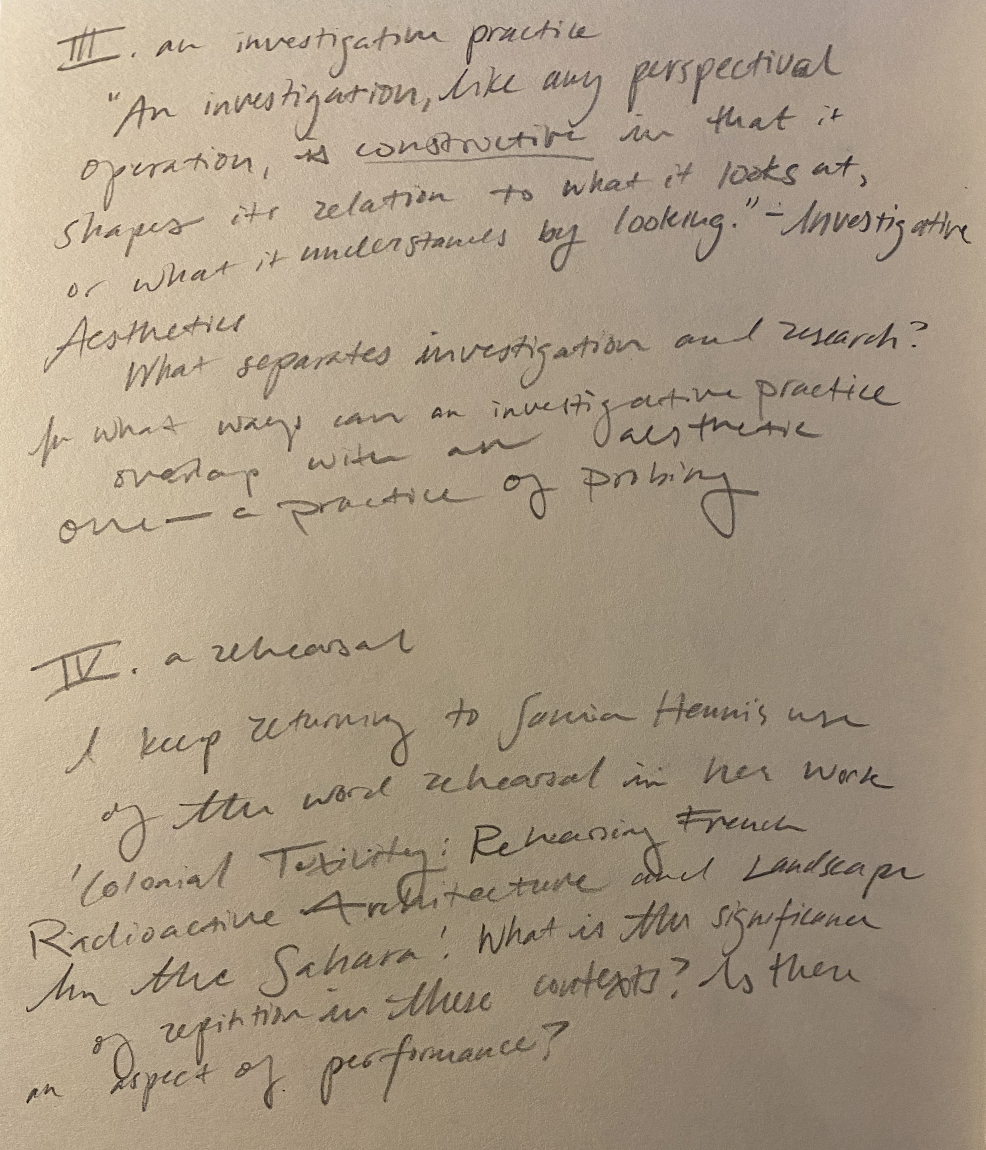 III. an investigative practice
"An investigation, like any perspectival
operation, is constructive in that it
shapes its relation to what it looks at,
or what it understands by looking." - Investigative
Aesthetics
What separates investigation and research?
In what ways can an investigative practice
overlap with an aesthetic
one — a practice of probing
IV. a rehearsal
I keep returning to Samia Henni's use
of the word rehearsal in her work
'Colonial Toxicity: Rehearsing French
Radioactive Architecture and Landscape
In the Sahara'. What is the significance
of repitition in these contexts? Is there
an aspect of performance?